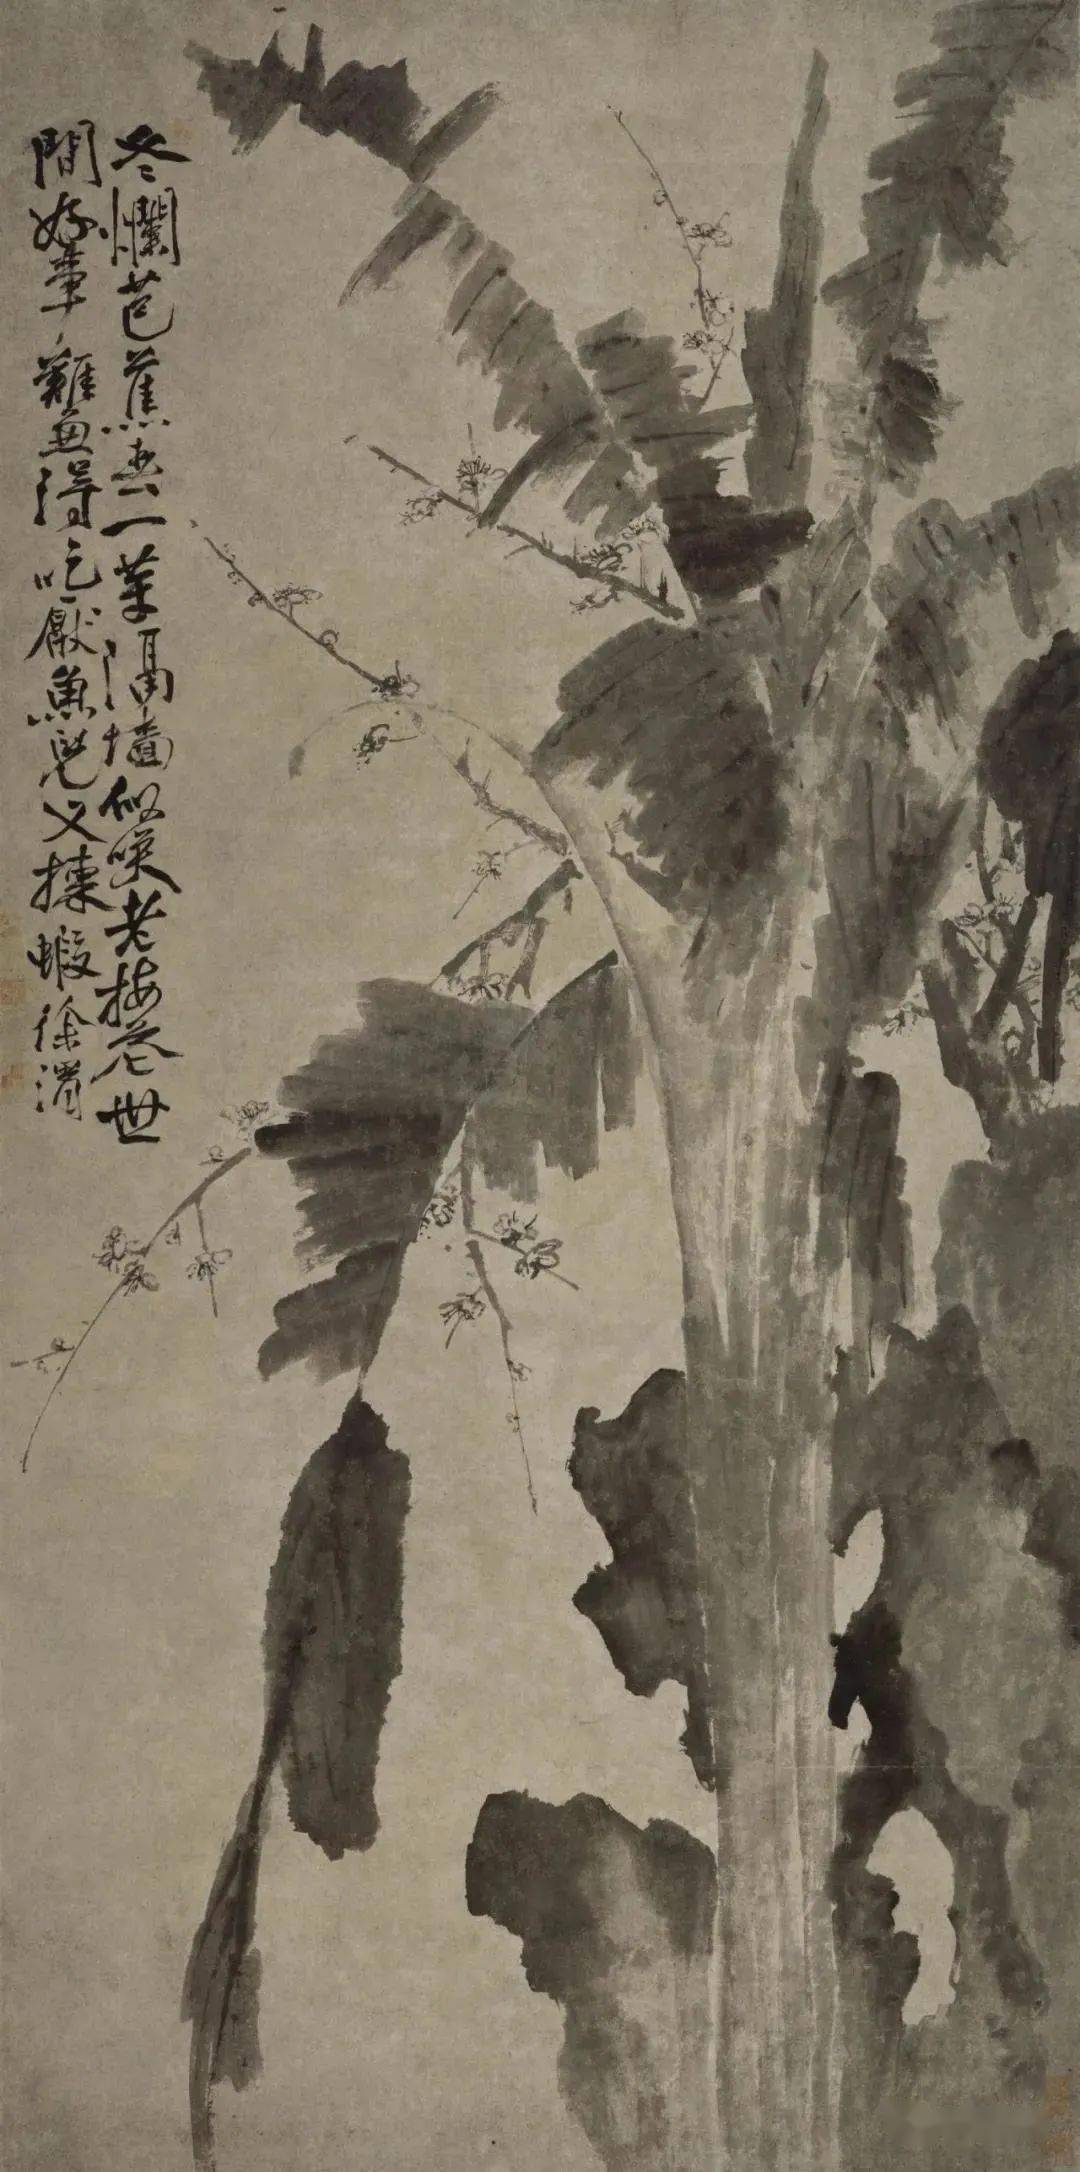 冬爛芭蕉春一芽隔墙似咲老梅花世
間好事難兼得吃厭魚兒又揀蝦徐渭